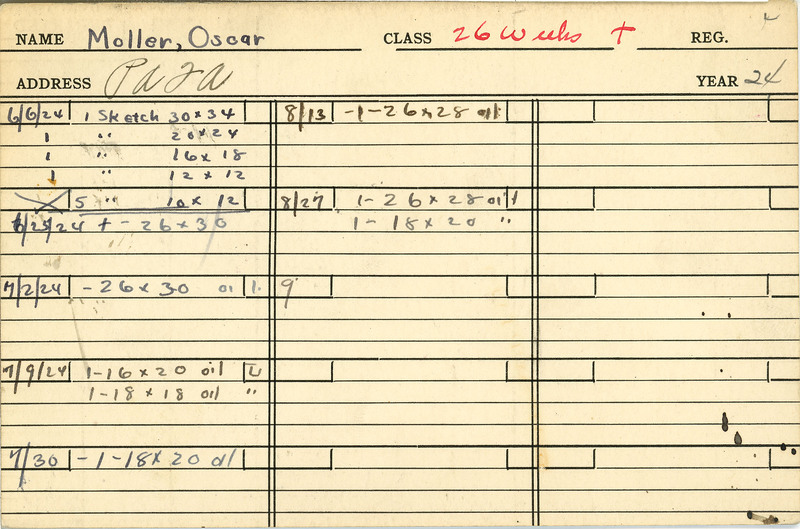 NAME Moller, Oscar CLASS 26 Weeks † REG.
ADDRESS YEAR 24
6/6/24 1 Sketch 30 x 34
1 " 20 x 24
1 " 16 x 18
1 " 12 x 12
5 " 10 x 12
6/25/24 + - 26 x 30
7/2/24 - 26 x 30 oil
7/9/24 1-16 x 20 oil
1-18 x 18 oil "
7/30 -1-18 x 20 oil
8/13 -1-26 x 28 oil
8/27 1-26 x 28 oil
1-18 x 20 "
9